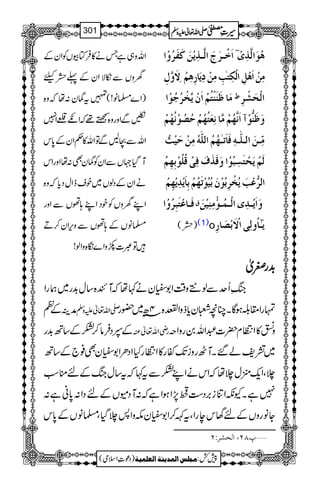 سیرتِ مصطفیٰ صلی اللہ تعالیٰ علیہ وسلم
301
هُوَ الَّذِیْۤ اَخْرَجَ الَّذِیْنَ كَفَرُوْا
مِنْ اَهْلِ الْكِتٰبِ مِنْ دِیَارِهِمْ لِاَوَّلِ
الْحَشْرِ ؕ مَا ظَنَنْتُمْ اَنْ یَّخْرُجُوْا
وَ ظَنُّوْۤا اَنَّهُمْ مَّانِعَتُهُمْ حُصُوْنُهُمْ
مِّنَ اللّٰهِ فَاَتٰىهُمُ اللّٰهُ مِنْ حَیْثُ
لَمْ یَحْتَسِبُوْا وَ قَذَفَ فِیْ قُلُوْبِهِمُ
الرُّعْبَ یُخْرِبُوْنَ بُیُوْتَهُمْ بِاَیْدِیْهِمْ
وَ اَیْدِی الْمُؤْمِنِیْنَ فَاعْتَبِرُوْا
یٰۤاُولِی الْاَبْصَارِ (1) (حشر)
اللہ وہی ہے جس نے کافر کتابیوں کو ان کے
گھروں سے نکالا ان کے پہلے حشر کیلئے
(اے مسلمانو!) تمہیں یہ گمان نہ تھا کہ وہ
نکلیں گے اور وہ سمجھتے تھے کہ ان کے قلعے انہیں
اللہ سے بچالیں گے تو اللہ کا حکم ان کے پاس
آ گیا جہاں سے ان کو گمان بھی نہ تھا اور اس
نے ان کے دلوں میں خوف ڈال دیا کہ وہ
اپنے گھروں کو خود اپنے ہاتھوں سے اور
مسلمانوں کے ہاتھوں سے ویران کرتے
ہیں تو عبرت پکڑو اے نگاہ والو!
بدر صغریٰ
جنگِ اُحد سے لوٹتے وقت ابوسفیان نے کہا تھا کہ آئندہ سال بدر میں ہمارا
تمہارا مقابلہ ہوگا۔ چنانچہ شعبان یا ذوالقعدہ ۴ھ میں حضور صلی اللہ تعالیٰ علیہ وسلم مدینہ کے نظم
ونسق کا انتظام حضرت عبداللہ بن رواحہ رضی اللہ تعالیٰ عنہ کے سپرد فرما کر لشکر کے ساتھ بدر
میں تشریف لے گئے۔ آٹھ روز تک کفار کا انتظار کیا ادھر ابوسفیان بھی فوج کے ساتھ
چلا، ایک منزل چلا تھا کہ اس نے اپنے لشکر سے یہ کہا کہ یہ سال جنگ کے لئے مناسب
نہیں ہے۔ کیونکہ اتنا زبردست قحط پڑا ہوا ہے کہ نہ آدمیوں کے لئے دانہ پانی ہے نہ
جانوروں کے لئے گھاس چارا، یہ کہہ کر ابوسفیان مکہ واپس چلا گیا، مسلمانوں کے پاس
1……پ۲۸، الحشر:۲
پیش کش: مجلس المدینة العلمیة (دعوتِ اسلامی)